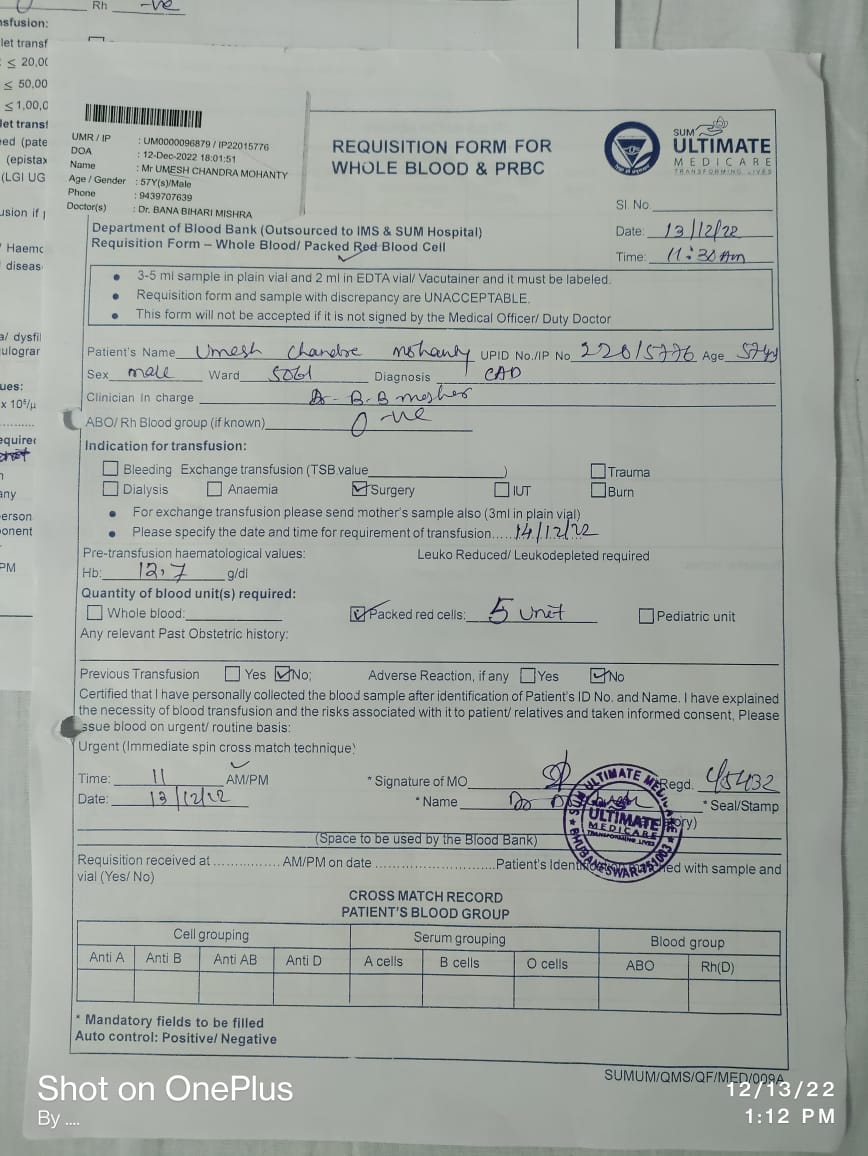 Rh -ve
nsfusion:
let transf
≤ 20,00
≤ 50,00
≤ 1,00,0
let transf
ed (pate
(epistax
(LGI UG
usion if
Haemo
diseas
a/ dysfil
ulograr
ues:
x 10⁶/µ
equired
any
erson
onent
PM
UMR / IP : UM0000096879 / IP22015776
DOA : 12-Dec-2022 18:01:51
Name : Mr UMESH CHANDRA MOHANTY
Age / Gender : 57Y(s)/Male
Phone : 9439707639
Doctor(s) : Dr. BANA BIHARI MISHRA
REQUISITION FORM FOR
WHOLE BLOOD & PRBC
SUM
ULTIMATE
MEDICARE
TRANSFORMING LIVES
Sl. No.
Department of Blood Bank (Outsourced to IMS & SUM Hospital)
Date: 13/12/22
Requisition Form – Whole Blood/ Packed Red Blood Cell
Time: 11:30 Am
• 3-5 ml sample in plain vial and 2 ml in EDTA vial/ Vacutainer and it must be labeled.
• Requisition form and sample with discrepancy are UNACCEPTABLE.
• This form will not be accepted if it is not signed by the Medical Officer/ Duty Doctor
Patient's Name Umesh Chandra Mohanty UPID No./IP No. 22015776 Age 57
Sex male Ward Diagnosis CAD
Clinician In charge Dr. B.B
ABO/ Rh Blood group (if known) O -ve
Indication for transfusion:
Bleeding Exchange transfusion (TSB.value ) Trauma
Dialysis Anaemia Surgery IUT Burn
• For exchange transfusion please send mother's sample also (3ml in plain vial)
• Please specify the date and time for requirement of transfusion.....14/12/22
Pre-transfusion haematological values: Leuko Reduced/ Leukodepleted required
Hb: 12.7 g/dl
Quantity of blood unit(s) required:
Whole blood: Packed red cells: 5 unit Pediatric unit
Any relevant Past Obstetric history:
Previous Transfusion Yes No; Adverse Reaction, if any Yes No
Certified that I have personally collected the blood sample after identification of Patient's ID No. and Name. I have explained
the necessity of blood transfusion and the risks associated with it to patient/ relatives and taken informed consent, Please
issue blood on urgent/ routine basis:
Urgent (Immediate spin cross match technique)
Time: 11 AM/PM * Signature of MO Regd.
Date: 13/12/22 * Name Dr * Seal/Stamp
SUM ULTIMATE MEDICARE
ULTIMATE
MEDICARE
TRANSFORMING LIVES
BHUBANESWAR-751003
(Space to be used by the Blood Bank)
Requisition received at ................ AM/PM on date ............................Patient's with sample and
vial (Yes/ No)
CROSS MATCH RECORD
PATIENT'S BLOOD GROUP
Cell grouping Serum grouping Blood group
Anti A Anti B Anti AB Anti D A cells B cells O cells ABO Rh(D)
* Mandatory fields to be filled
Auto control: Positive/ Negative
SUMUM/QMS/QF/MED/009A
Shot on OnePlus
By ....
12/13/22
1:12 PM